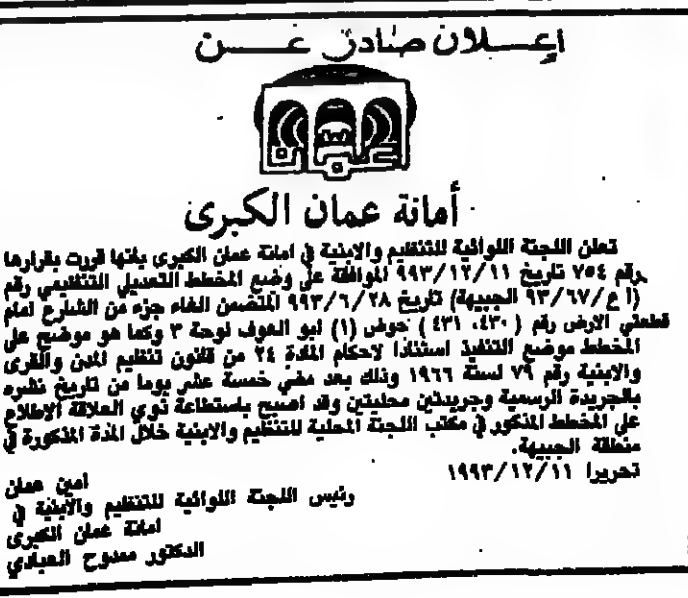 إعلان صادر عن
عمان
أمانة عمان الكبرى
تعلن اللجنة اللوائية للتنظيم والابنية في امانة عمان الكبرى بانها قررت بقرارها
رقم ٧٥٤ تاريخ ٩٩٣/١٢/١١ الموافقة على وضع المخطط التعديلي التنظيمي رقم
(ا ع/٩٣/٦٧ الجبيهة) تاريخ ٩٩٣/٦/٢٨ المتضمن الغاء جزء من الشارع امام
قطعتي الارض رقم (٤٣٠، ٤٣١) حوض (١) ابو العوف لوحة ٣ وكما هو موضح على
المخطط موضع التنفيذ استنادا لاحكام المادة ٢٤ من قانون تنظيم المدن والقرى
والابنية رقم ٧٩ لسنة ١٩٦٦ وذلك بعد مضي خمسة عشر يوما من تاريخ نشره
بالجريدة الرسمية وجريدتين محليتين وقد اصبح باستطاعة ذوي العلاقة الاطلاع
على المخطط المذكور في مكتب اللجنة المحلية للتنظيم والابنية خلال المدة المذكورة في
منطقة الجبيهة.
تحريرا ١٩٩٣/١٢/١١
امين عمان
رئيس اللجنة اللوائية للتنظيم والابنية في
امانة عمان الكبرى
الدكتور ممدوح العبادي